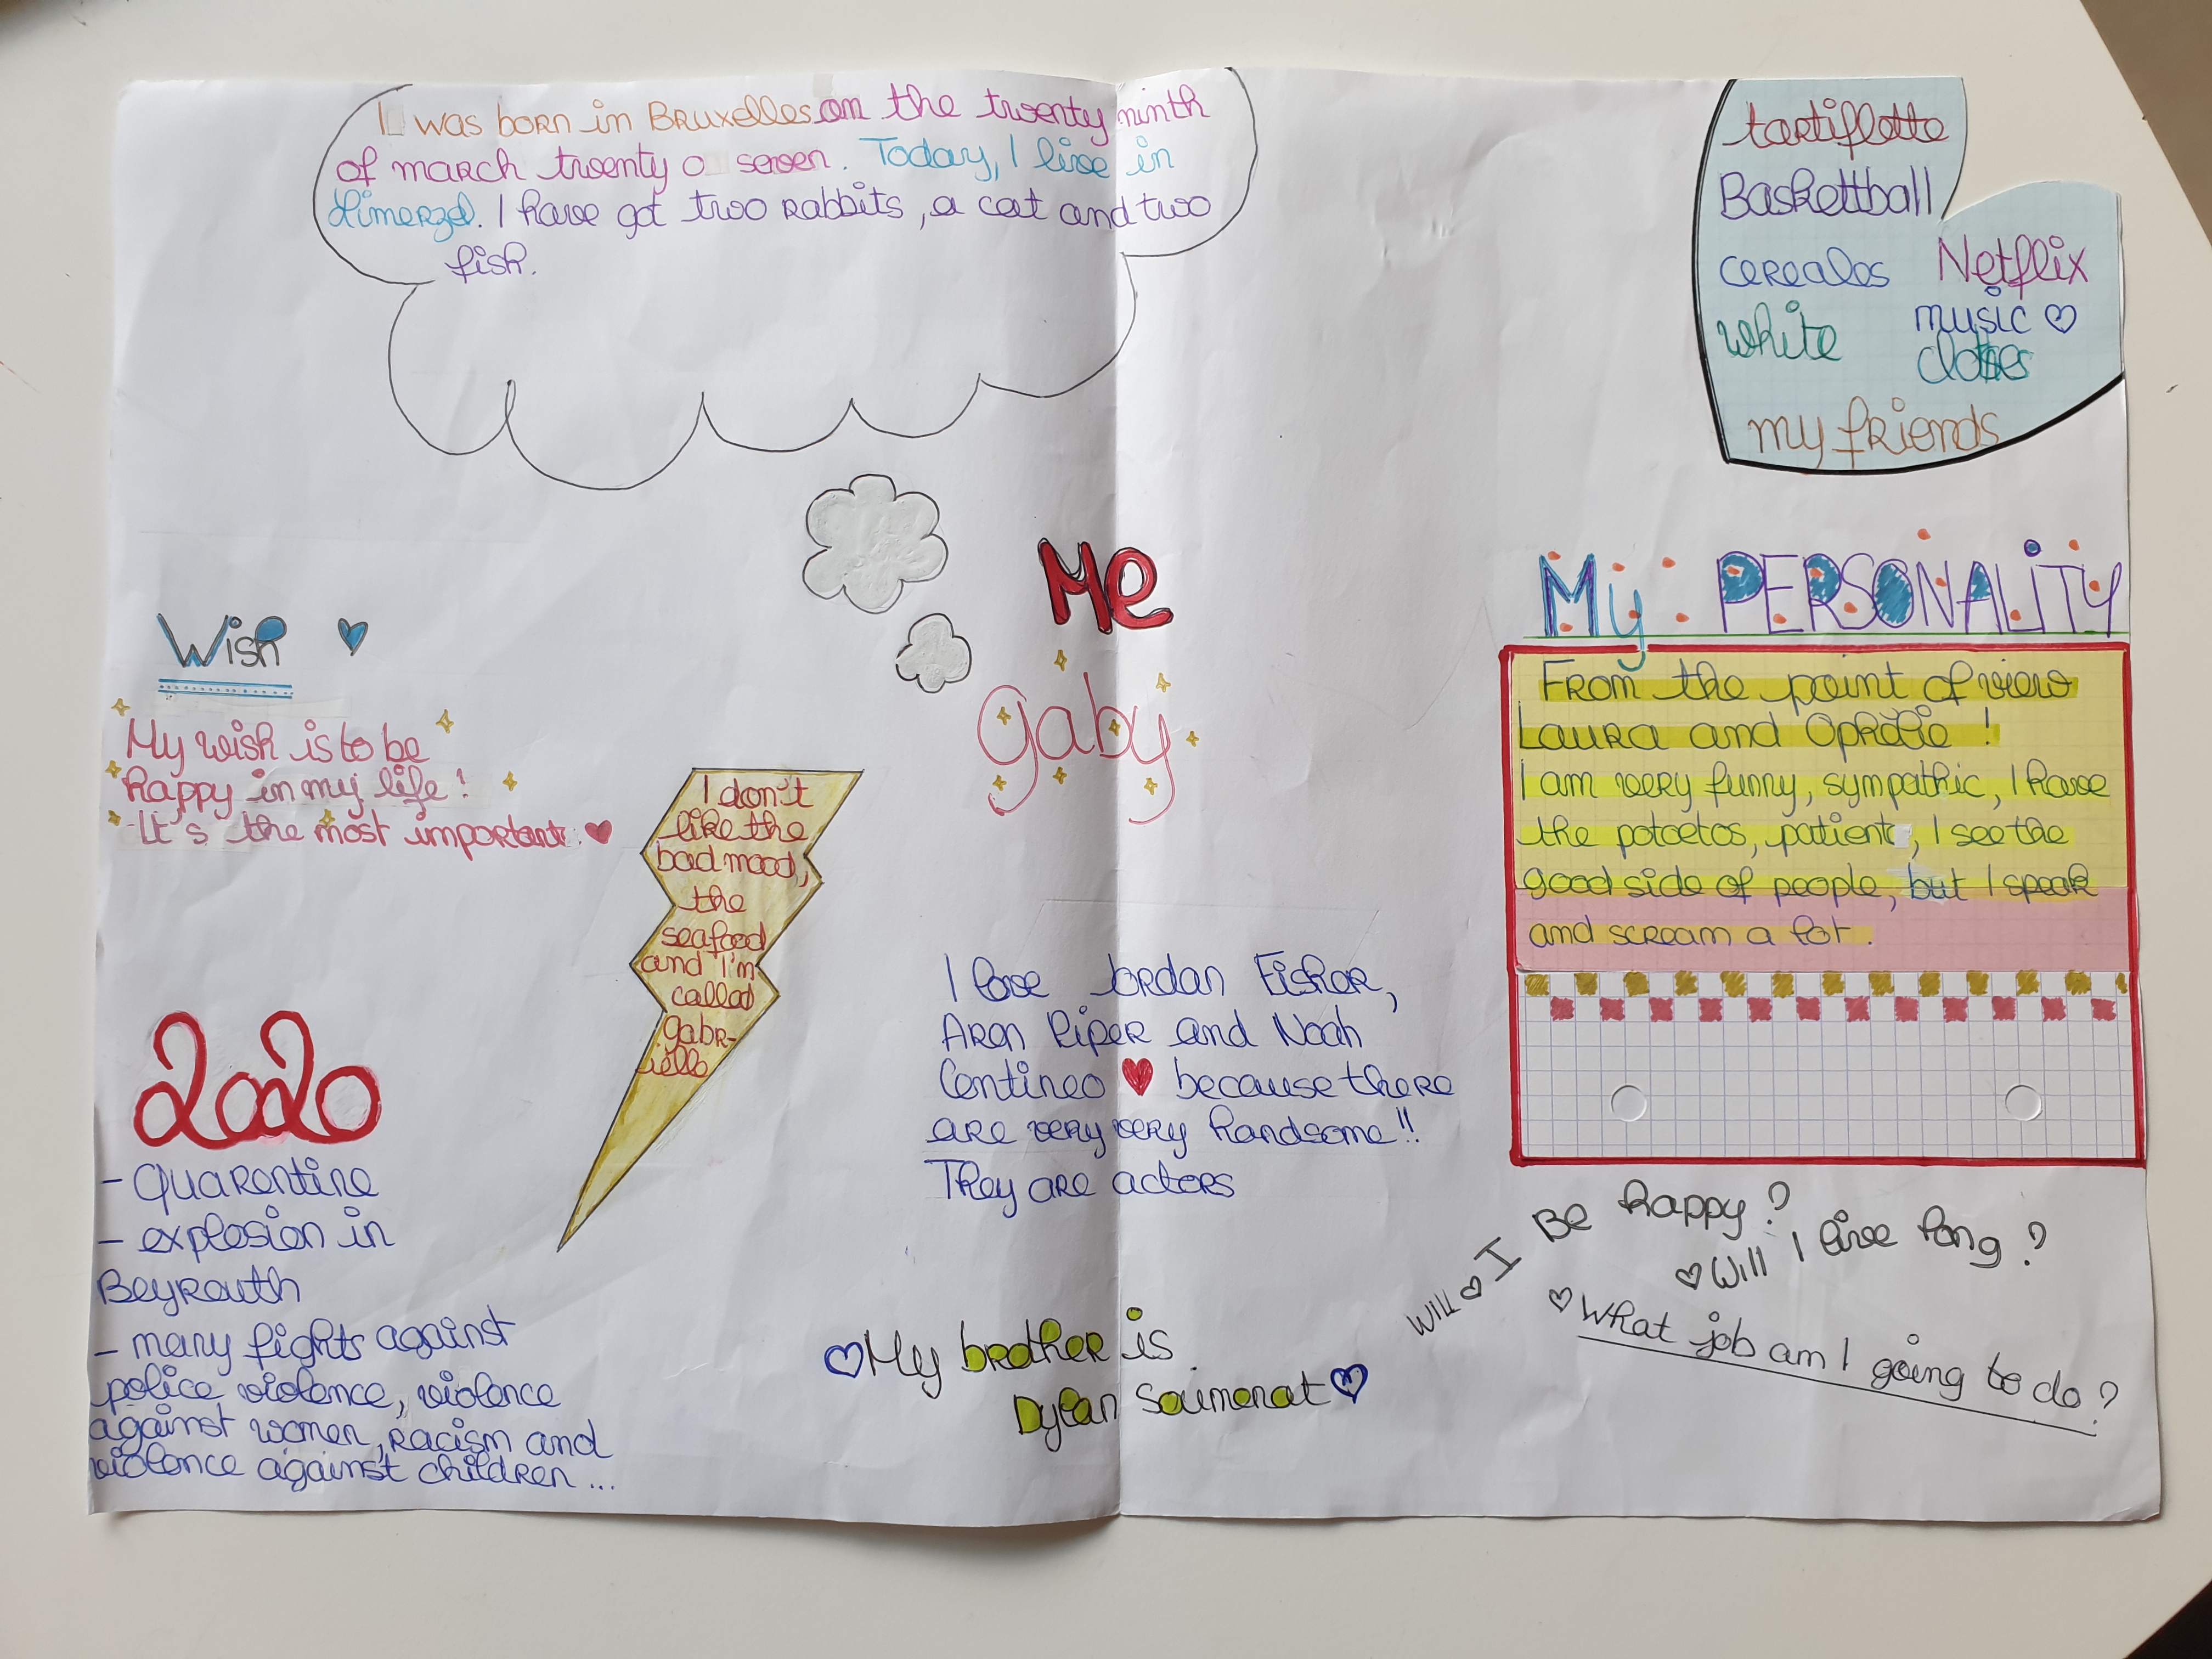 I was born in Bruxelles on the twenty ninth
of march twenty o seven. Today, I live in
Limerzel. I have got two rabbits, a cat and two
fish.
tartiflette
Baskettball
cereales
Netflix
white
music
clothes
my friends
Me
gaby
Wish
My wish is to be
happy in my life!
It's the most important.
I don't
like the
bad mood,
the
seafood
and I'm
called
gabr-
ielle
My PERSONALITY
From the point of view
Laura and Ophélie !
I am very funny, sympathic, I have
the potoetos, patient, I see the
good side of people, but I speak
and scream a lot.
2020
- Quarentine
- explosion in
Beyrouth
- many fights against
police violence, violence
against women, racism and
violence against children ...
I love Jordan Fisher,
Aron Piper and Noah
Centineo because there
are very very handsome!!
They are actors
My brother is
Dylan
Will I Be happy?
Will I live long?
What job am I going to do?